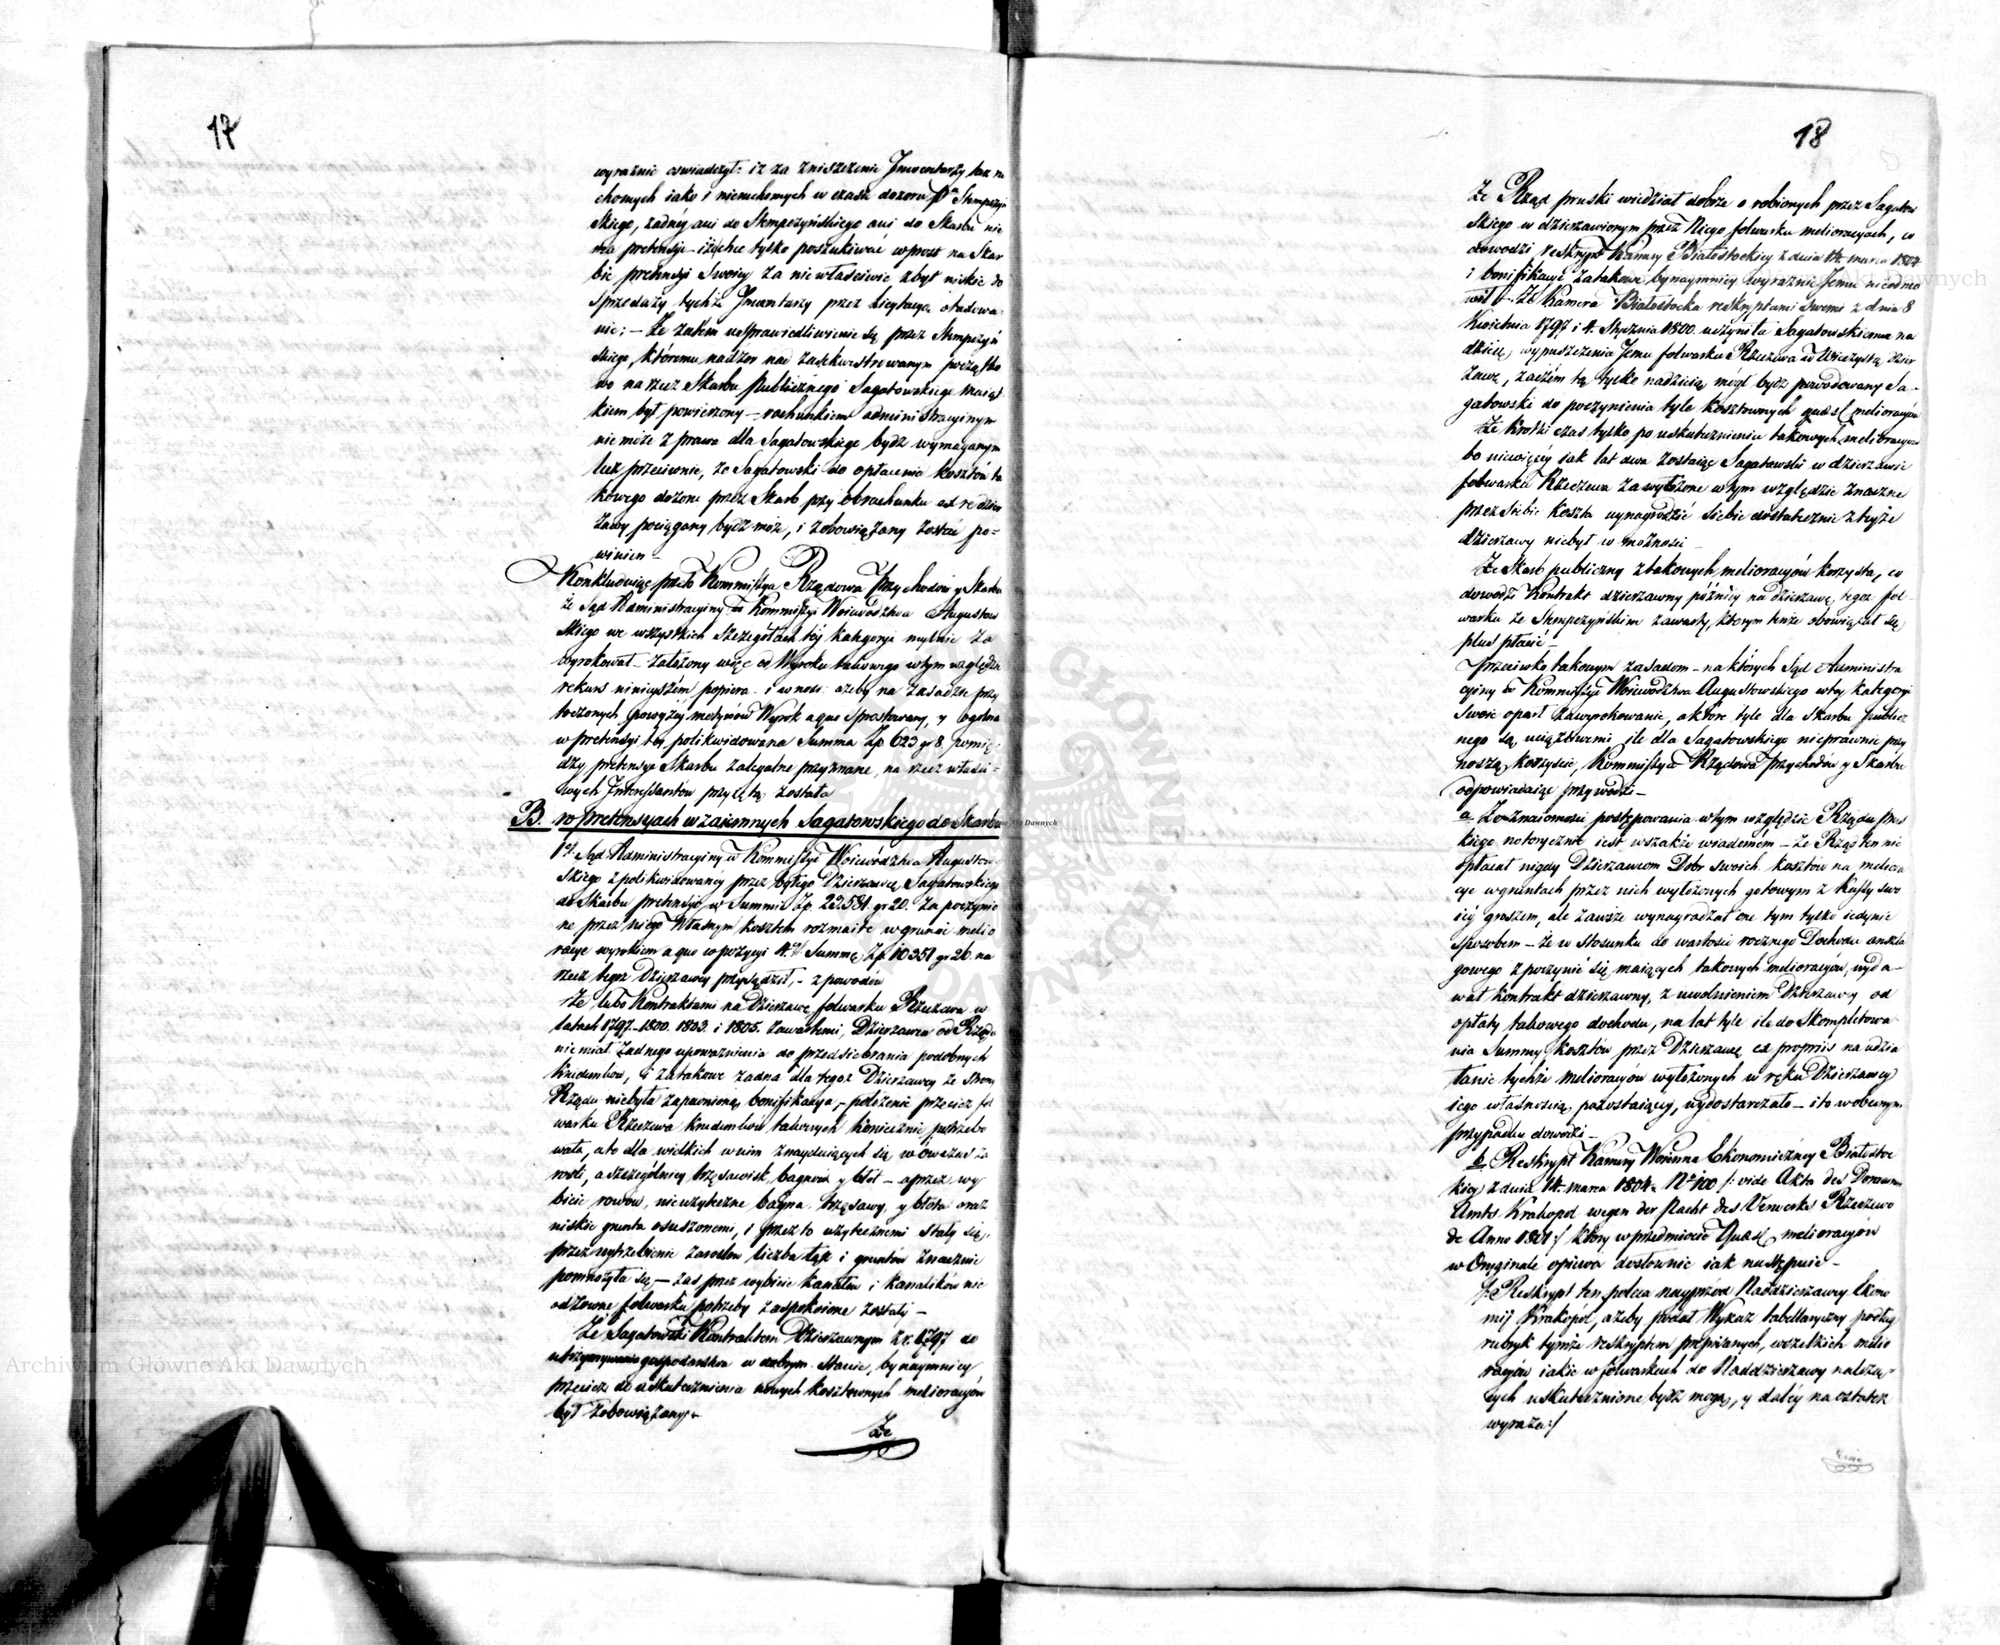 17
wyraźnie oswiadczył: iż za zniszczenie Jnwentarzy tak ru
chomych iako i nieruchomych w czasie dozoru Pa Stempczyń
skiego, żadney ani do Stempczyńskiego ani do Skarbu nie
ma pretensyi – iżechce tylko poszukiwać wprost na Skar
bie pretensyi Swoiey za niewłaściwie zbyt niskie do
sprzedaży tychże Jnwentarzy przez licytacyę otaxowa
nie; – Że zatem usprawiedliwienie się przez Stempczyń
skiego, któremu nadzor nad zasekwestrowanym początko
wo na rzecz Skarbu Publicznego Sagatowskiego maiąt
kiem był powierzony – rachunkiem administracyinym
nie może z prawa dla Sagatowskiego bydź wymaganym
lecz przeciwnie, że Sagatowski do opłacenia kosztów ta
kowego dozoru przez Skarb przy obrachunku od re dzier
żawy pociągany bydź może, i zobowiązany zostać po=
winien –
Konkluduiąc przeto Kommissya Rządowa Przychodów y Skarbu
że Sąd Administracyiny w Kommissyi Woiewództwa Augustow
skiego we wszystkich szczegółach téj kategoryi mylnie za
wyrokował – założony więc od Wyroku takowego w tym względzie
rekurs ninieyszém popiera i wnosi: ażeby na zasadzie przy
toczonych powyżéj motywów Wyrok a quo sprostowany, y ogólna
w pretensyi téj polikwidowana Summa Zp. 623 gr 8. pomię
dzy pretensye Skarbu zalegalne przyznane, na rzecz właści
wych Jnteressantów przyiętą została
B. w pretensyach wzaiemnych Sagatowskiego do Skarbu
1o. Sąd Administracyiny w Kommissyi Woiewództwa Augustow
skiego z polikwidowanéy przez byłego Dzierżawcę Sagatowskiego
do Skarbu pretensyi w Summie Zp. 22.581. gr 20. za poczynio
ne przez niego własnym kosztem rozmaite w gruncie melio
racye wyrokiem a quo w pozycyi 4. Summę Zp. 10351 gr 26. na
rzecz tegoż Dzierżawcy przysądził, – z powodów
Że lubo Kontraktami na Dzierżawę folwarku Rzeczewa w
latach 1797. 1800. 1803. i 1805. zawartemi, Dzierżawca od Rządu
nie miał żadnego upoważnienia do przedsiebrania podobnych
, i za takowe żadna dla tegoż Dzierżawcy ze strony
Rządu niebyła zapewnioną bonifikacya, – położenie przecież fol
warku Rzeczewa takowych koniecznie potrzebo
wało, a to dla wielkich w nim znayduiących się wówczas za
rosli, a szczególniey trzęsawisk, bagnów y błot – a przez wy
bicie rowów, nieużyteczne bagna, trzęsawy, y błota oraz
niskie grunta osuszonemi, i przez to użytecznemi stały się,
przez wytrzebienie zarosłów liczba łąk i gruntów znacznie
pomnożyła się, – zaś przez wybicie kanałów i kanalików nie
odzowne folwarku potrzeby zaspokoione zostały –
Że Sagatowski Kontraktem Dzierżawnym z r. 1797 do
utrzymywania gospodarstwa w dobrym stanie, bynaymniey
przecież do uskutecznienia nowych kosztownych melioracyów
był zobowiązany –
Że
18
Że Rząd pruski wiedział dobrze o robionych przez Sagatow
skiego w dzierżawionym przez Niego folwarku melioracyach, co
dowodzi reskrypt Kamery Białostockiey z dnia 14. marca 1804
i bonifikacyi za takowe bynaymniey wyraznie Jemu nieodmó
wił – Że Kamera Białostocka reskryptami swemi z dnia 8
Kwietnia 1797 i 4. Stycznia 1800. uczyniła Sagatowskiemu na
dzieię, wypuszczenia Jemu folwarku Rzeczewa w wieczystą dzier
żawę, zaczém tą tylko nadzieią mógł bydz powodowany Sa-
gatowski do poczynienia tyle kosztownych quaest melioracyów
Że krótki czas tylko po uskutecznieniu takowych melioracyów
bo niewięcey iak lat dwa zostaiąc Sagatowski w dzierżawie
folwarku Rzeczewa za wyłożone w tym względzie znaczne
przez siebie koszta wynagrodzić siebie dostatecznie z teyże
dzierżawy niebył w możności –
Że Skarb publiczny z takowych melioracyów korzysta, co
dowodzi Kontrakt dzierżawny późniey na dzierżawę tegoż fol-
warku ze Stempczyńskim zawarty, którym tenże obowiązał się
plus płacić –
Przeciwko takowym zasadom – na których Sąd Administra
cyiny w Kommissyi Woiewództwa Augustowskiego w téy kategoryi
swoie oparł zawyrokowanie, a które tyle dla Skarbu publicz
nego są uciążliwemi, ile dla Sagatowskiego nieprawnie przy
noszą korzyście, Kommissya Rządowa Przychodów y Skarbu
odpowiadaiąc przywodzi –
a. Ze znaiomości postępowania w tym względzie Rządu prus
kiego notorycznie iest wszakże wiadomém – że Rząd ten nie
opłacał nigdy Dzierżawcom Dóbr swoich kosztów na meliora
cye w gruntach przez nich wyłożonych gotowym z Kassy swo
iéj groszem, ale zawsze wynagradzał one tym tylko iedynie
sposobem – że w stosunku do wartości rocznego Dochodu anszla
gowego z poczynić się maiących takowych melioracyów, wyda-
wał kontrakt dzierżawny, z uwolnieniem Dzierżawcy od
opłaty takowego dochodu, na lat tyle ile do skompletowa
nia Summy kosztów przez Dzierżawcę ex propriis na udzia
łanie tychże melioracyów wyłożonych w ręku Dzierżawcy
iego własnością pozostaiącey, wydostarczało – i to w obecnym
przypadku dowodzi –
b. Reskrypt Kamery Woienno Ekonomiczney Białostoc
kiey z dnia 14. marca 1804. No 100 /: vide Akta des Domainen
Amts Krakopol wegen der Pacht des Vorwerks Rzeczewo
de Anno 1801 :/ który w przedmiocie quaest melioracyów
w Oryginale opiewa dosłownie iak następuie –
/: Reskrypt ten poleca nayprzód Naddzierżawcy Ekono
mij Krakopol, ażeby podał Wykaz tabellaryczny podług
rubryk tymże reskryptem przepisanych, wszelkich melio
racyów iakie w folwarkach do Naddzierżawy należą-
cych uskutecznione bydz mogą, y daléy na ostatek
wyraża :/